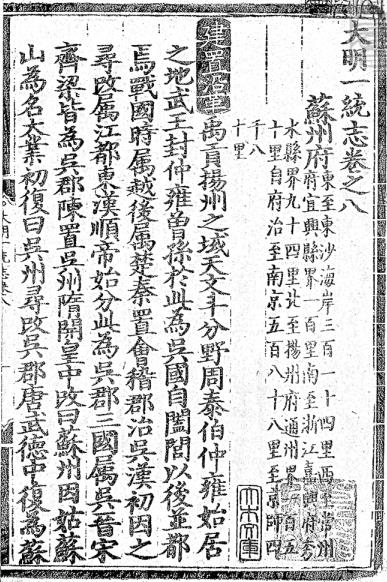 大明一統志卷之八
蘇州府東至東沙海岸三百一十四里西至常州
府宜興縣界一百里南至浙江嘉興府秀
水縣界九十四里北至揚州府通州界一百五
十里自府治至南京五百八十八里至京師四
千八
十里
建置沿革禹貢揚州之域天文斗分野周泰伯仲雍始居
之地武王封仲雍曾孫於此為吳國自闔閭以後並都
焉戰國時属越後属楚秦置會稽郡治吳漢初因之
尋改属江都東漢順帝始分此為吳郡三國属吳晉宋
齊梁皆為吳郡陳置吳州隋開皇中改曰蘇州因姑蘇
山為名大業初復曰吳州尋改吳郡唐武德中復為蘇